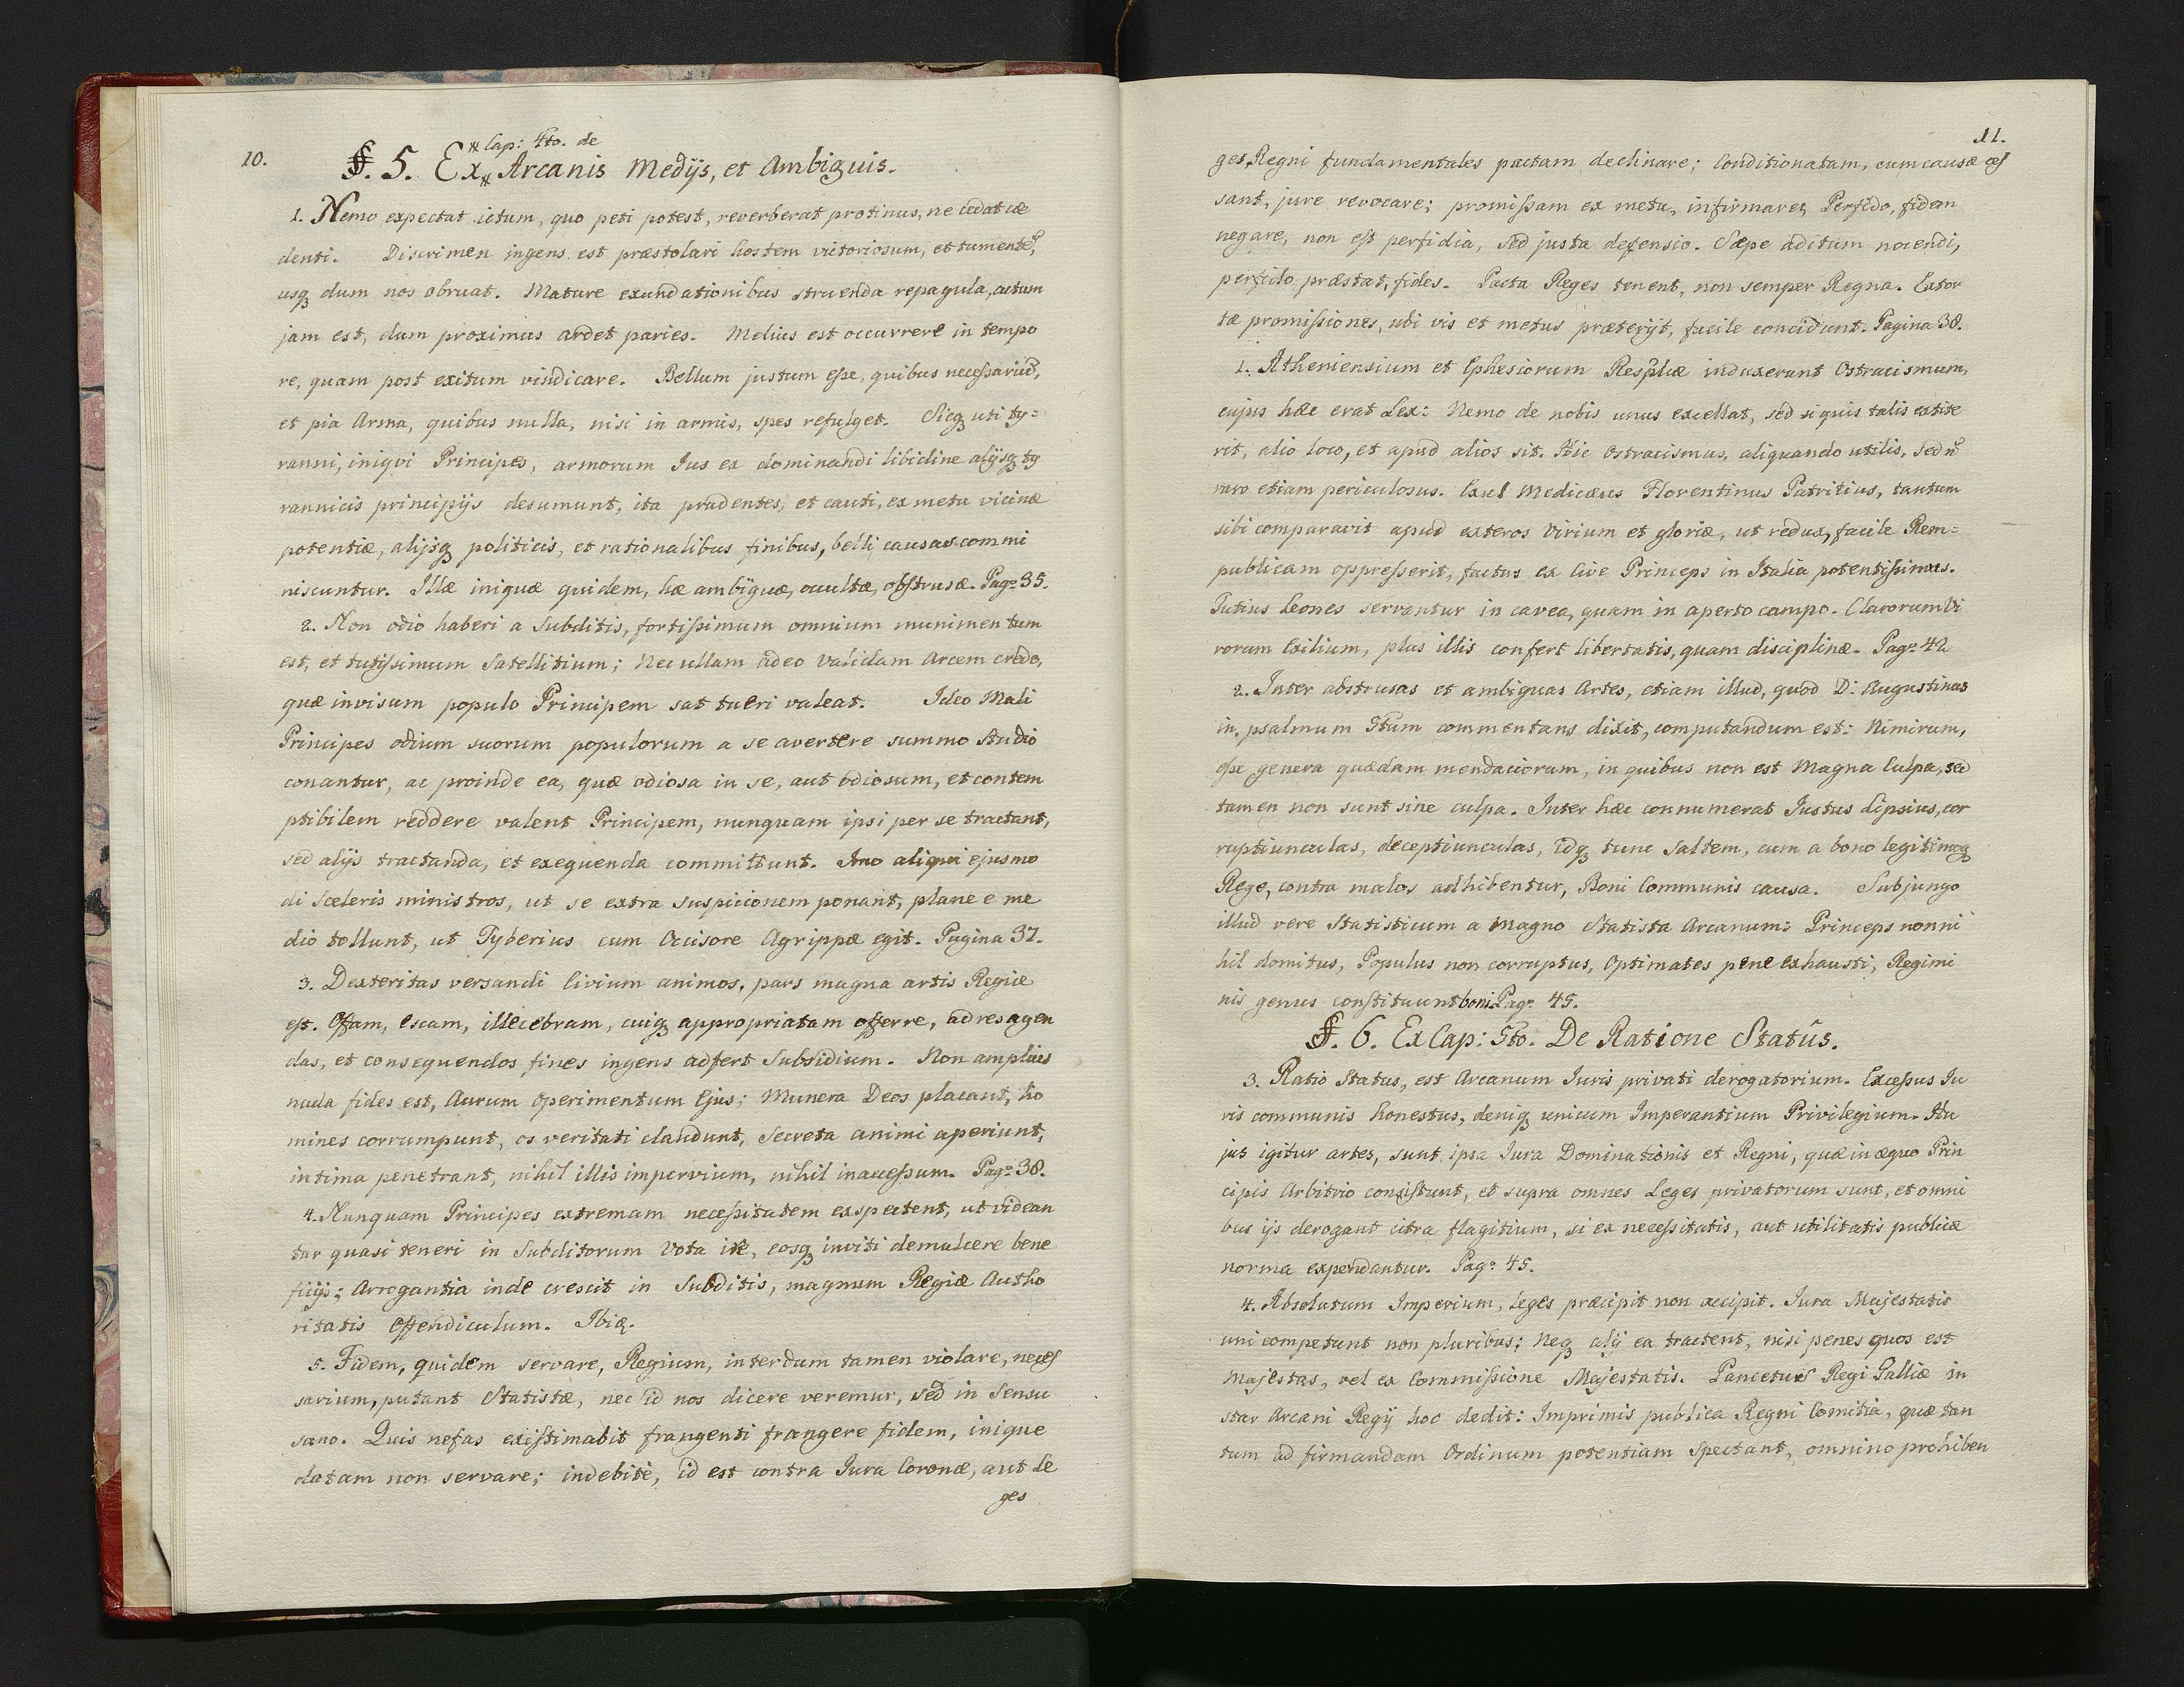 10.
※ Cap: 4to. de
§. 5. Ex※ Arcanis Medijs, et Ambiguis.
1. Nemo expectat ictum, quo peti potest, reverberat protinus, ne cedat cæ
denti. Discrimen ingens est præstolari hostem victoriosum, et tumentē,
usq dum nos obruat. Mature exundationibus struenda repagula, actum
jam est, dum proximus ardet paries. Melius est occurrere in tempo
re, quam post exitum vindicare. Bellum justum esse, quibus necessariū,
et pia Arma, quibus nulla, nisi in armis, spes refulget. Sicq uti ty=
ranni, iniqvi Principes, armorum Jus ex dominandi libidine alijsq ty
rannicis principijs desumunt, ita prudentes, et cauti, ex metu vicinæ
potentiæ, alijsq politicis, et rationalibus finibus, belli causas commi
niscuntur. Illæ iniquæ quidem, hæ ambiguæ, occultæ, obstrusæ. Pag: 35.
2. Non odio haberi a Subditis, fortissimum omnium munimentum
est, et tutissimum Satellitium; Nec ullam adeo validam Arcem credo,
quæ invisum populo Principem sat tueri valeat. Ideo Mali
Principes odium suorum populorum a se avertere summo Studio
conantur, ac proinde ea, quæ odiosa in se, aut odiosum, et contem
ptibilem reddere valent Principem, nunquam ipsi per se tractant,
sed alijs tractanda, et exequenda committunt. Imo aliqui ejusmo
di Sceleris ministros, ut se extra suspicionem ponant, plane e me
dio tollunt, ut Tyberius cum Occisore Agrippæ egit. Pagina 37.
3. Dexteritas versandi Civium animos, pars magna artis Regiæ
est. Offam, escam, illecebram, cuiq appropriatam offerre, ad res agen
das, et consequendos fines ingens adfert Subsidium. Non amplius
nuda fides est, Aurum Operimentum Ejus; Munera Deos placant, ho
mines corrumpunt, os veritati claudunt, Secreta animi aperiunt,
intima penetrant, nihil illis impervium, nihil inaccessum. Pag: 38.
4. Nunquam Principes extremam necessitatem exspectent, ut videan
tur quasi teneri in Subditorum Vota ire, eosq inviti demulcere bene
ficijs; Arrogantia inde crescit in Subditis, magnum Regiæ Autho
ritatis Offendiculum. Ibid.
5. Fidem, quidem servare, Regium, interdum tamen violare, neces
sarium, putant Statistæ, nec id nos dicere veremur, sed in Sensu
sano. Quis nefas existimabit frangenti frangere fidem, inique
datam non servare; indebitè, id est contra Jura Coronæ, aut Le
ges
11.
ges Regni fundamentales pactam declinare; Conditionatam, cum causæ ces
sant, jure revocare; promissam ex metu, infirmare; Perfido, fidem
negare, non est perfidia, sed justa defensio. Sæpe aditum nocendi,
perfido præstat, fides. Pacta Reges tenent, non semper Regna. Extor
tæ promissiones, ubi vis et metus præterijt, facile concidunt. Pagina 38.
1. Atheniensium et Ephesiorum Respblicæ induxerunt Ostracismum,
cujus hæc erat Lex: Nemo de nobis unus excellat, sed si quis talis extite
rit, alio loco, et apud alios sit. Hic Ostracismus, aliquando utilis, sed n̄
raro etiam periculosus. Exul Medicæus Florentinus Patritius, tantum
sibi comparavit apud exteros Virium et gloriæ, ut redux, facile Rem=
publicam oppresserit, factus ex Cive Princeps in Italia potentissimus.
Tutius Leones servantur in cavea, quam in aperto campo. Clarorum Vi
rorum Exilium, plus illis confert libertatis, quam disciplinæ. Pag: 42
2. Inter abstrusas et ambiguas Artes, etiam illud, quod D: Augustinus
in psalmum 5tum commentans dixit, computandum est: Nimirum,
esse genera quædam mendaciorum, in quibus non est Magna Culpa, sed
tamen non sunt sine culpa. Inter hæc connumerat Justus Lipsius, cor
ruptiunculas, deceptiunculas, idq tunc saltem, cum a bono legitimoq
Rege, contra malos adhibentur, Boni Communis causa. Subjungo
illud vere Statisticum a Magno Statista Arcanum: Princeps nonni
hil domitus, Populus non corruptus, Optimates pene exhausti, Regimi
nis genus constituunt boni. Pag: 45.
§. 6. Ex Cap: 5to. De Ratione Statûs.
3. Ratio Status, est Arcanum Juris privati derogatorium. Excessus Ju
ris communis honestus, deniq unicum Imperantium Privilegium. Hu
jus igitur artes, sunt ipsa Jura Dominationis et Regni, quæ in æquo Prin
cipis Arbitrio consistunt, et supra omnes Leges privatorum sunt, et omni
bus ijs derogant citra flagitium, si ex necessitatis, aut utilitatis publicæ
norma expendantur. Pag: 45.
4. Absolutum Imperium, leges præcipit non accipit. Jura Majestatis
uni competunt non pluribus; Neq alij ea tractent, nisi penes quos est
Majestas, vel ex Commissione Majestatis. Pancetus Regi Galliæ in
star Arcani Regij hoc dedit: Imprimis publica Regni Comitia, quæ tan
tum ad firmandam Ordinum potentiam Spectant, omnino prohiben